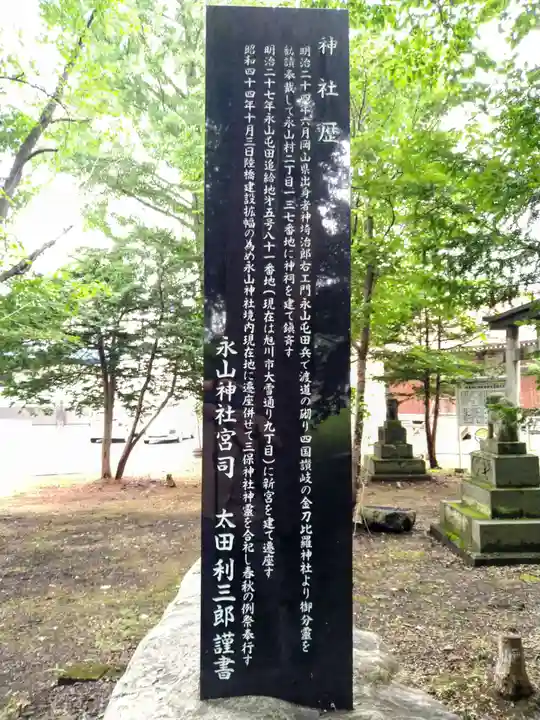 神社歴
明治二十四年六月岡山県出身者神埼治郎右エ門永山屯田兵で渡道の砌り四国讃岐の金刀比羅神社より御分霊を
勧請奉戴して永山村二丁目一三七番地に神祠を建て鎮斉す
明治二十七年永山屯田追給地才五号八十一番地(現在は旭川市大雪通り九丁目)に新宮を建て遷座す
昭和四十四年十月三日陸橋建設拡幅の為め永山神社境内現在地に遷座併せて三保神社神霊を合祀し春秋の例祭奉行す
永山神社宮司 太田利三郎謹書